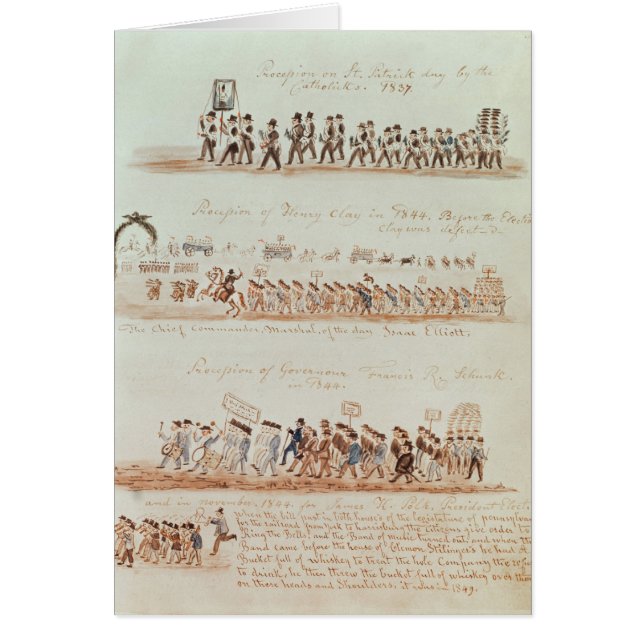 Procession on St. Patrick day by the
Catholicks. 1837.
Procession of Henry Clay in 1844. Before the Electio
Clay was defect-d-
The Chief Commander, Marshal, of the day Isaac Elliott,
Procession of Governour Francis R. Schunk.
in 1844.
and in november. 1844. for James K. Polk, President Elect.
when the bill past in both houses of the legistature of pennsylvan
for the railroad from york to harrisburg the Citizens give order to
Ring the Bells, and the Band of music turned out, and when the
Band came before the house of Elemon Stillinger's he had A
Bucket full of whiskey to treat the hole Company the
to drink, he then threw the bucket full of whiskey over them
on there heads and Shoulders, it was in 1849.